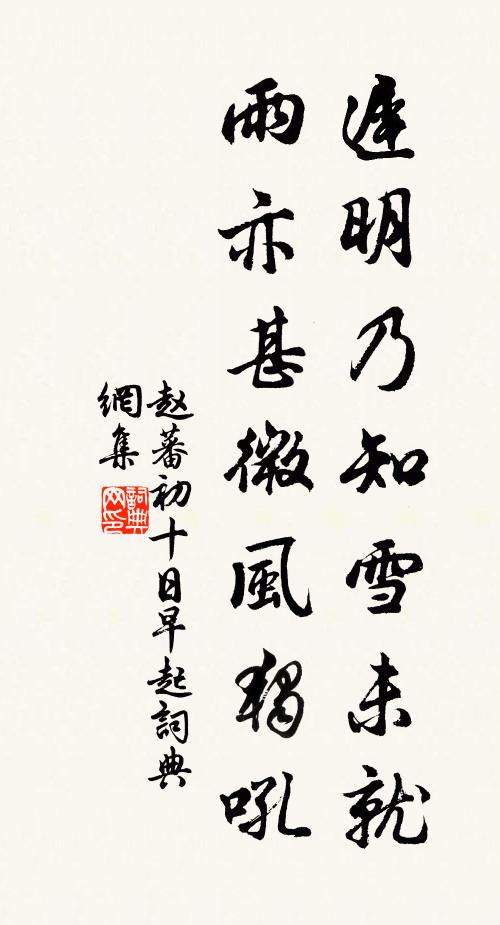 遲明乃知雪未就
雨亦甚微風獨吼
赵蕃初十日早起詞典
網集
詞典
网印